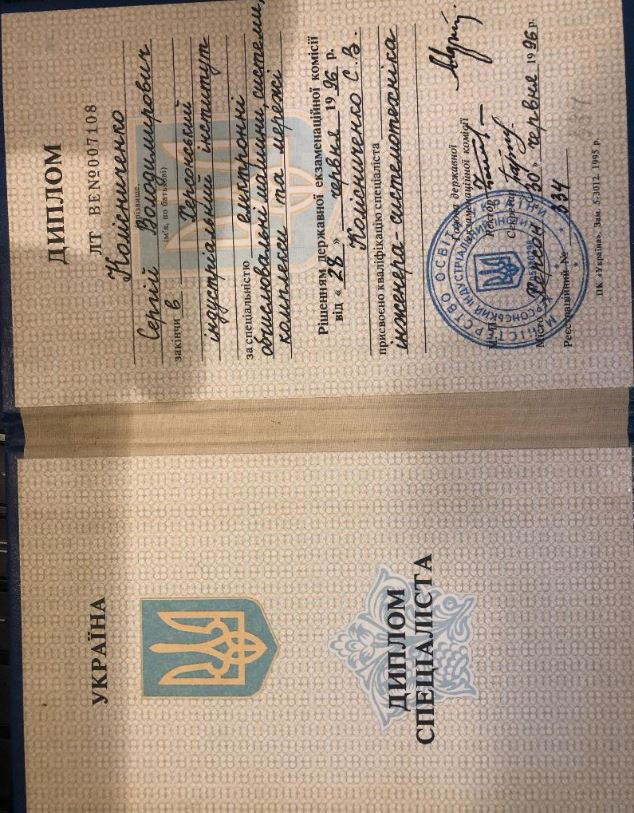 УКРАЇНА
ДИПЛОМ
СПЕЦІАЛІСТА
ДИПЛОМ
ЛТ ВЕ №007108
Колісниченко
прізвище,
Сергій Володимирович
ім'я, по батькові)
закінчи в Херсонський
індустріальний інститут
за спеціальністю електронні
обчислювальні машини, системи,
комплекси та мережі
Рішенням державної екзаменаційної комісії
від « 28 » червня 19 96 р.
Колісниченко С. В.
присвоєно кваліфікацію спеціаліста
інженера-системотехніка
Голова державної
екзаменаційної комісії
Ректор
Секретар
Місто Херсон «30» червня 19 96 р.
Реєстраційний № 634
МІНІСТЕРСТВО ОСВІТИ УКРАЇНИ
ХЕРСОНСЬКИЙ ІНДУСТРІАЛЬНИЙ ІНСТИТУТ
ПК «Україна». Зам. 5-3012. 1995 р.